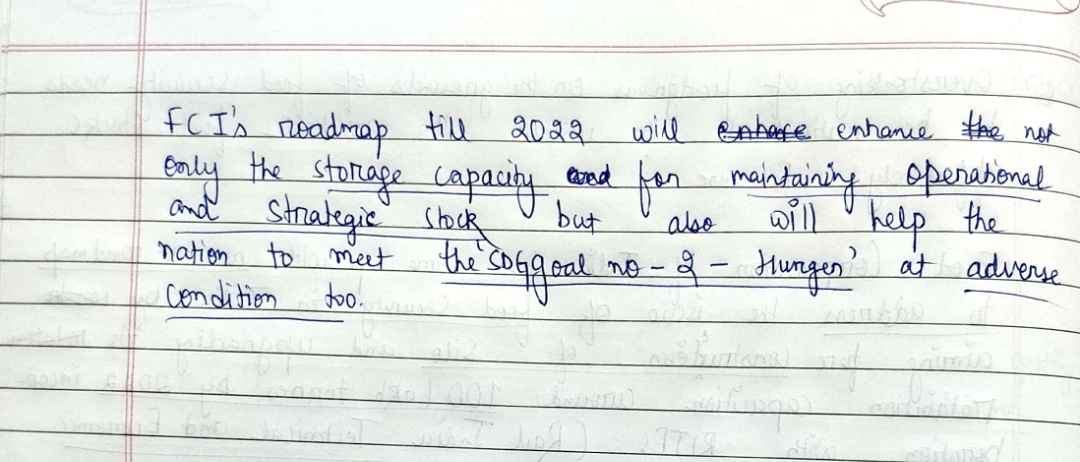 FCI's roadmap till 2022 will enhance the not
only the storage capacity and for maintaining operational
and strategic stock but also will help the
nation to meet the 'SDG goal no - 2 - Hunger' at adverse
condition too.